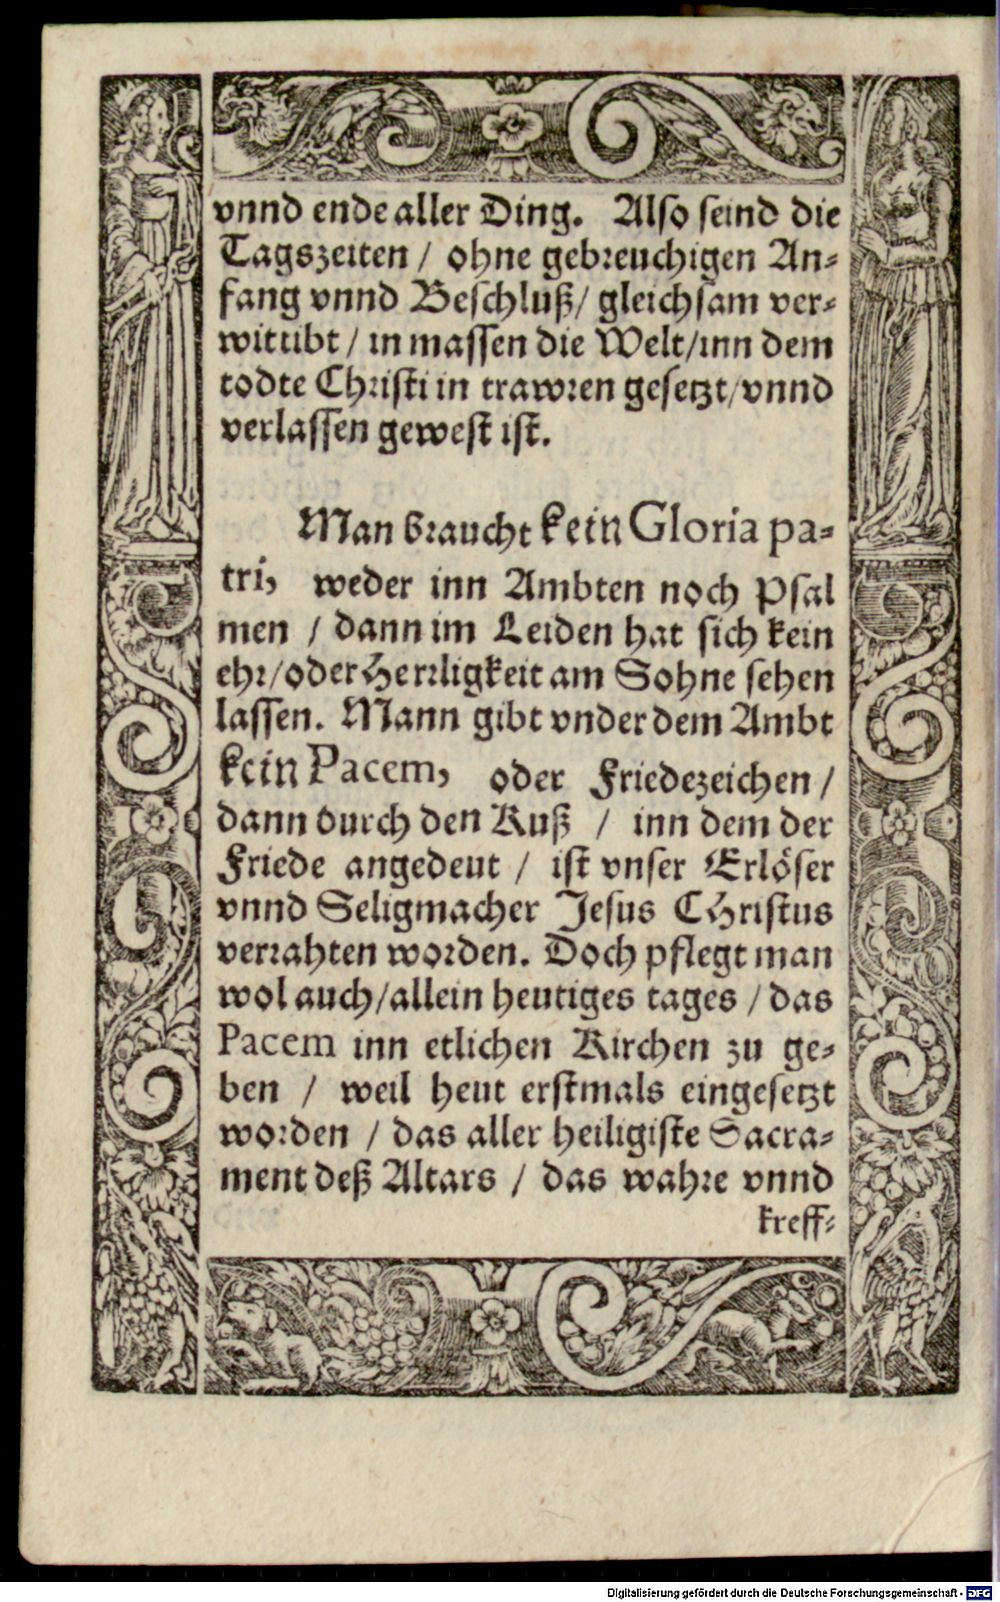 vnnd ende aller Ding. Also seind die
Tagszeiten / ohne gebreuchigen An-
fang vnnd Beschluß / gleichsam ver-
witibt / in massen die Welt / inn dem
todte Christi in trawren gesetzt / vnnd
verlassen gewest ist.
Man braucht kein Gloria pa-
tri, weder inn Ambten noch Psal
men / dann im Leiden hat sich kein
ehr / oder Herrligkeit am Sohne sehen
lassen. Mann gibt vnder dem Ambt
kein Pacem, oder Friedezeichen /
dann durch den Kuß / inn dem der
Friede angedeut / ist vnser Erlöser
vnnd Seligmacher Jesus CHristus
verrahten worden. Doch pflegt man
wol auch / allein heutiges tages / das
Pacem inn etlichen Kirchen zu ge-
ben / weil heut erstmals eingesetzt
worden / das aller heiligiste Sacra-
ment deß Altars / das wahre vnnd
kreff-
Digitalisierung gefördert durch die Deutsche Forschungsgemeinschaft - DFG